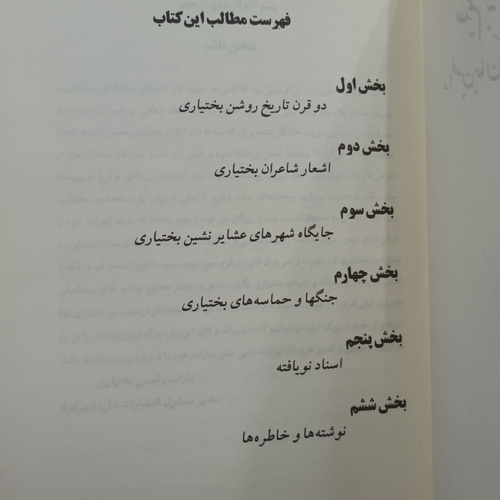 فهرست مطالب این کتاب
بخش اول
دو قرن تاریخ روشن بختیاری
بخش دوم
اشعار شاعران بختیاری
بخش سوم
جایگاه شهرهای عشایر نشین بختیاری
بخش چهارم
جنگها و حماسه‌های بختیاری
بخش پنجم
اسناد نویافته
بخش ششم
نوشته‌ها و خاطره‌ها